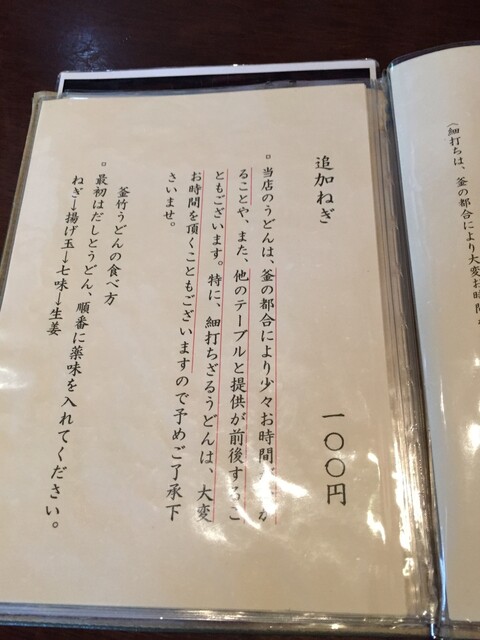 (細打ちは、釜の都合により大変お時間
追加ねぎ 一〇〇円
▫ 当店のうどんは、釜の都合により少々お時間が
ることや、また、他のテーブルと提供が前後するこ
ともございます。特に、細打ちざるうどんは、大変
お時間を頂くこともございますので予めご了承下
さいませ。
釜竹うどんの食べ方
▫ 最初はだしとうどん、順番に薬味を入れてください。
ねぎ→揚げ玉→七味→生姜